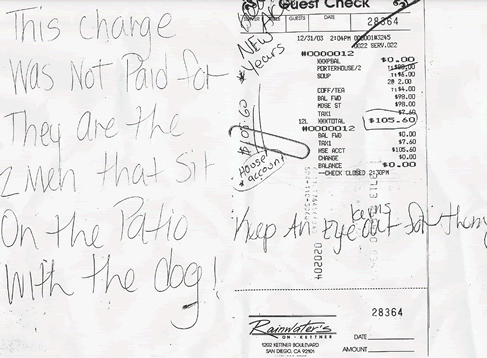 This charge
Was Not Paid for
They are the
2 Men that Sit
On the Patio
With the dog!
NEW
Years
$105.60
House
account
Guest Check
GUESTS
DATE
28364
12/31/03 2:04PM
0022 SERV.022
#0000012
XXXPBAL $0.00
PORTERHOUSE/2
SOUP T1$6.00
2@ 2.00
COFF/TEA T1$4.00
BAL FWD $98.00
MDSE ST $98.00
TAX1 $7.60
12L XXXTOTAL $105.60
#0000012
BAL FWD $0.00
TAX1 $7.60
HSE ACCT $105.60
CHANGE $0.00
BALANCE $0.00
--CHECK CLOSED 2:30PM
Keep An Eye out for them
020204
28364
Rainwater's
ON · KETTNER
1202 KETTNER BOULEVARD
SAN DIEGO, CA 92101
DATE
AMOUNT